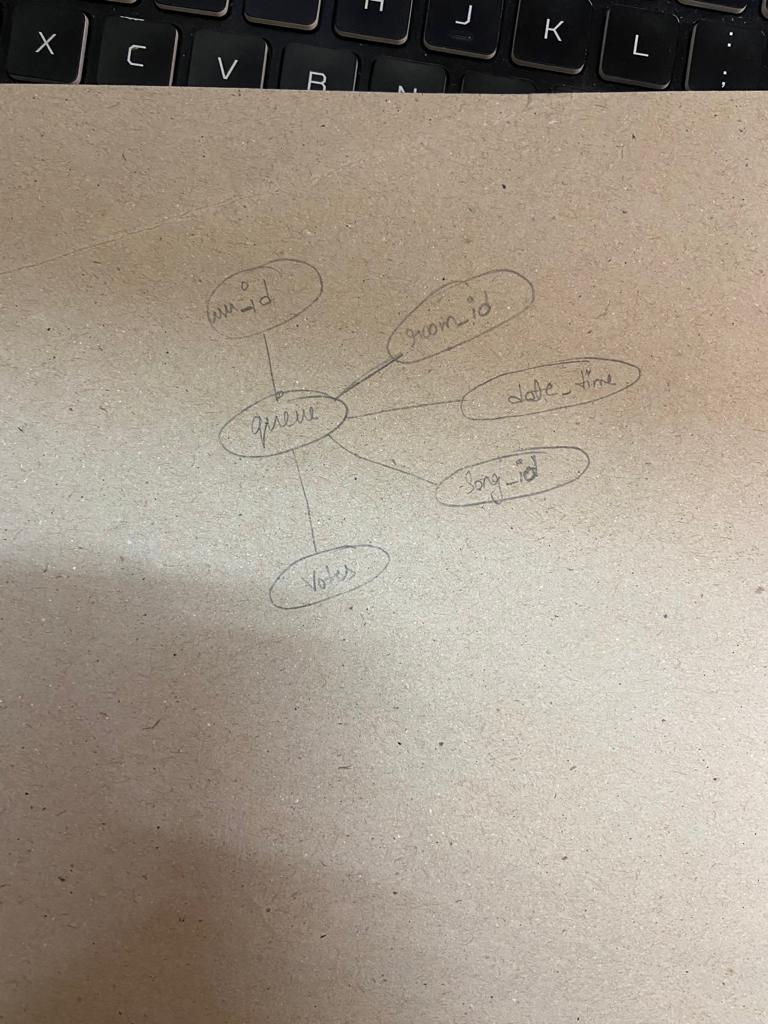 H J K L
X C V B N : ;
room_id
date_time
queue
song_id
votes